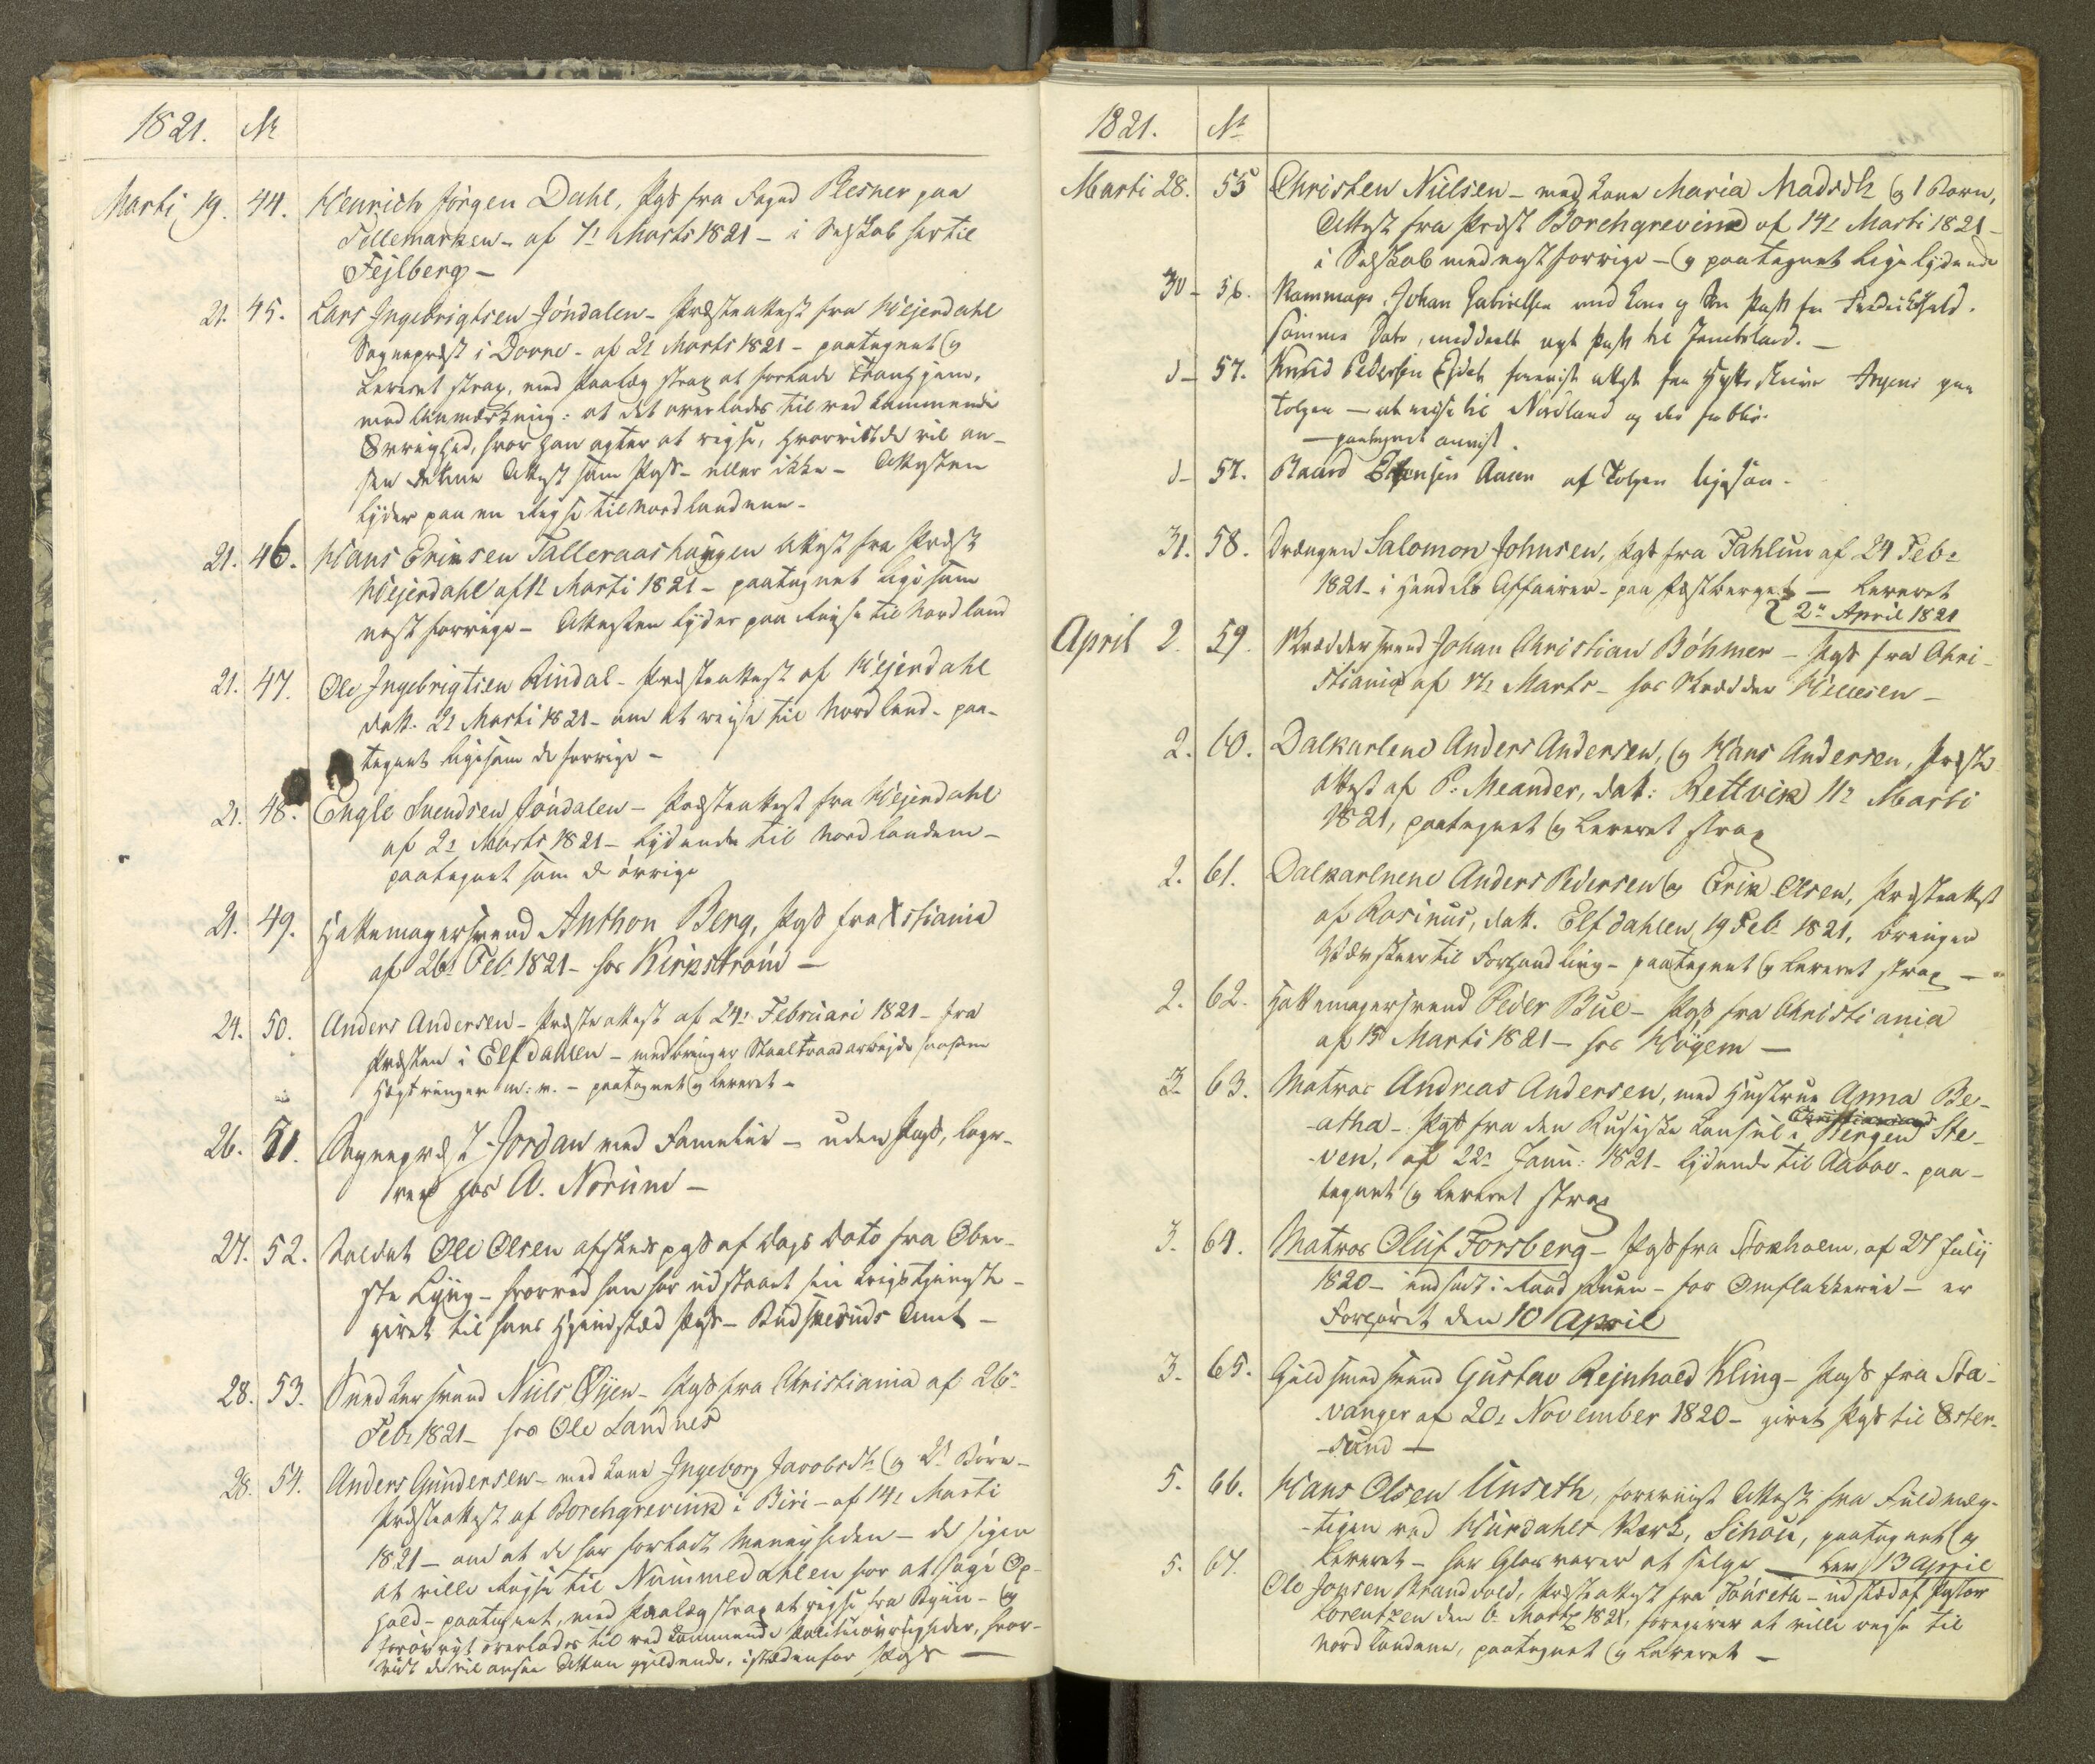 1821. No
Marti 19. 44. Henrich Jörgen Dahl, Pas fra Foged Resner paa
Tellemarken - af 7r Marts 1821 - i Selskab hertil
Fejlberg -
21. 45. Lars Ingebrigtsen Jöndalen - Præsteattest fra Hejerdahl
Sognepræst i Dovre - af 21 Marts 1821 - paategnet og
Leveret strax, med Paalæg strax at forlade Trondhjem,
med Anmærkning: at det overlades til vedkommende
Øvrighed, hvor han agter at rejse, hvorvidt de vil an-
see denne Attest som Pas - eller ikke - Attesten
lyder paa en Rejse til Nordlandene -
21. 46. Hans Ericksen Talleraashaugen Attest fra Præst
Hejerdahl af 12 Marti 1821 - paategnet ligesom
nest forrige - Attesten lyder paa Rejse til Nordland
21. 47. Ole Ingebrigtsen Rindal - Præsteattest af Hejerdahl
datt. 21 Marti 1821 - om at rejse til Nordland - paa-
tegnet ligesom de forrige -
21. 48. Engle Svendsen Jöndalen - Præsteattest fra Hejerdahl
af 21 Marts 1821 - lydende til Nordlandene -
paategnet som de övrige
21. 49. Hattemagersvend Anthon Berg, Pas fra Xstiania
af 26r Feb. 1821 - hos Kirkström -
24. 50. Anders Andersen - Præsteattest af 24r Februari 1821 - fra
Præsten i Elfdahlen - medbringer Staaltraadarbejde saasom
Hægtringer m: v. - paategnet og leveret -
26. 51. Sognepræst Jordan med Familie - uden Pas, loge-
rer hos A. Norum -
27. 52. Soldat Ole Olsen afskedspas af dags dato fra Ober-
ste Lyng - hvorved han har udstaaet sin Krigstjeneste -
givet til hans Hjemsted Pas - Budskeruds Amt -
28. 53. Snedkersvend Niels Øyen - Pas fra Christiania af 26r
Feb. 1821 - hos Ole Landnes
28. 54. Anders Gundersen - med Kone Ingeborg Jacobsdtr og 2 Börn -
Præsteattest af Borchgrevink i Biri - af 14r Marti
1821 - om at de har forladt Menigheden - de sigen
at ville Rejse til Nummedahlen for at søge Op-
hold - paategnet, med Paalæg strax at rejse fra Byen - og
forövrigt overlades til vedkommende Politieövrigheder, hvor-
vidt de vil ansee Atten gjeldende, istedenfor Pas -
1821. No
Marti 28. 55 Christen Nielsen - med Kone Maria Madsdtr og 1 Barn,
Attest fra Præst Borchgrevink af 14r Marti 1821 -
i Selskab med nest forrige - og paategnet lige lydende
30 - 56. Kammager Johan Gabrielsen med Kone og Pass fra Fredrikshald.
samme Dato, meddeelt nyt Pass til Jemteland. -
d - 57. Knud Pedersen Eidet forevist attest fra Hytteskriver Irgens paa
Tolgen - at rejse til Nordland og der fæ
- paategnet anvist.
d - 57. Baard Estensen Aasen af Tolgen ligesaa -
31. 58. Drengen Salomon Johnsen, Pas fra Fahlun af 24 Feb.
1821 - i Handels Affairer - paa Festberget - Leveret
2r April 1821
April 2. 59. Skræddersvend Johan Christian Böhmer - Pas fra Chri-
stiania af 17r Marts - hos Skrædder Willesen -
2. 60. Dalkarlene Anders Andersen, og Hans Andersen, Præste
Attest af P. Meander, dat: Rettvik 11r Marti
1821, paategnet og leveret strax
2. 61. Dalkarlnene Anders Pedersen og Erik Olsen, Præsteattest
af Rosinus, datt. Elfdahlen, 19 Feb 1821, bringer
til Forhandling - paategnet og leveret strax -
2. 62. Hattemagersvend Peder Bue - Pas fra Christiania
af 15 Marti 1821 - hos Höyem -
3. 63. Matros Andreas Andersen, med Hustrue Anna Be-
-atha - Pas fra den Rusiske Consul i Christiansand Bergen Ste-
-ven, af 22r Janu: 1821 - lydende til Aaboe - paa-
tegnet og leveret strax
3. 64. Matros Oluf Forsberg - Pas fra Stokholm, af 27 July
1820 - indsadt i Raadstuen - for Omflakkerie - er
Forhört den 10 April
3. 65. Guldsmedsvend Gustav Rejnhold Kling - Pas fra Sta-
vanger af 20r November 1820 - givet Pas til Öster-
-sund -
5. 66. Hans Olsen Unseth, forevist Attest fra Fuldmæg-
-tigen ved Hurdahls Værk, Schou, paategnet og
Leveret - har Glasvarer at selge - Lev. 13 April
5. 67. Ole Jonsen Strandvold, Præsteattest fra Tönseth - udsted af Pastor
Lorentzen den 6 Marts 1821, foregiver at ville rejse til
Nordlandene, paategnet og leveret -